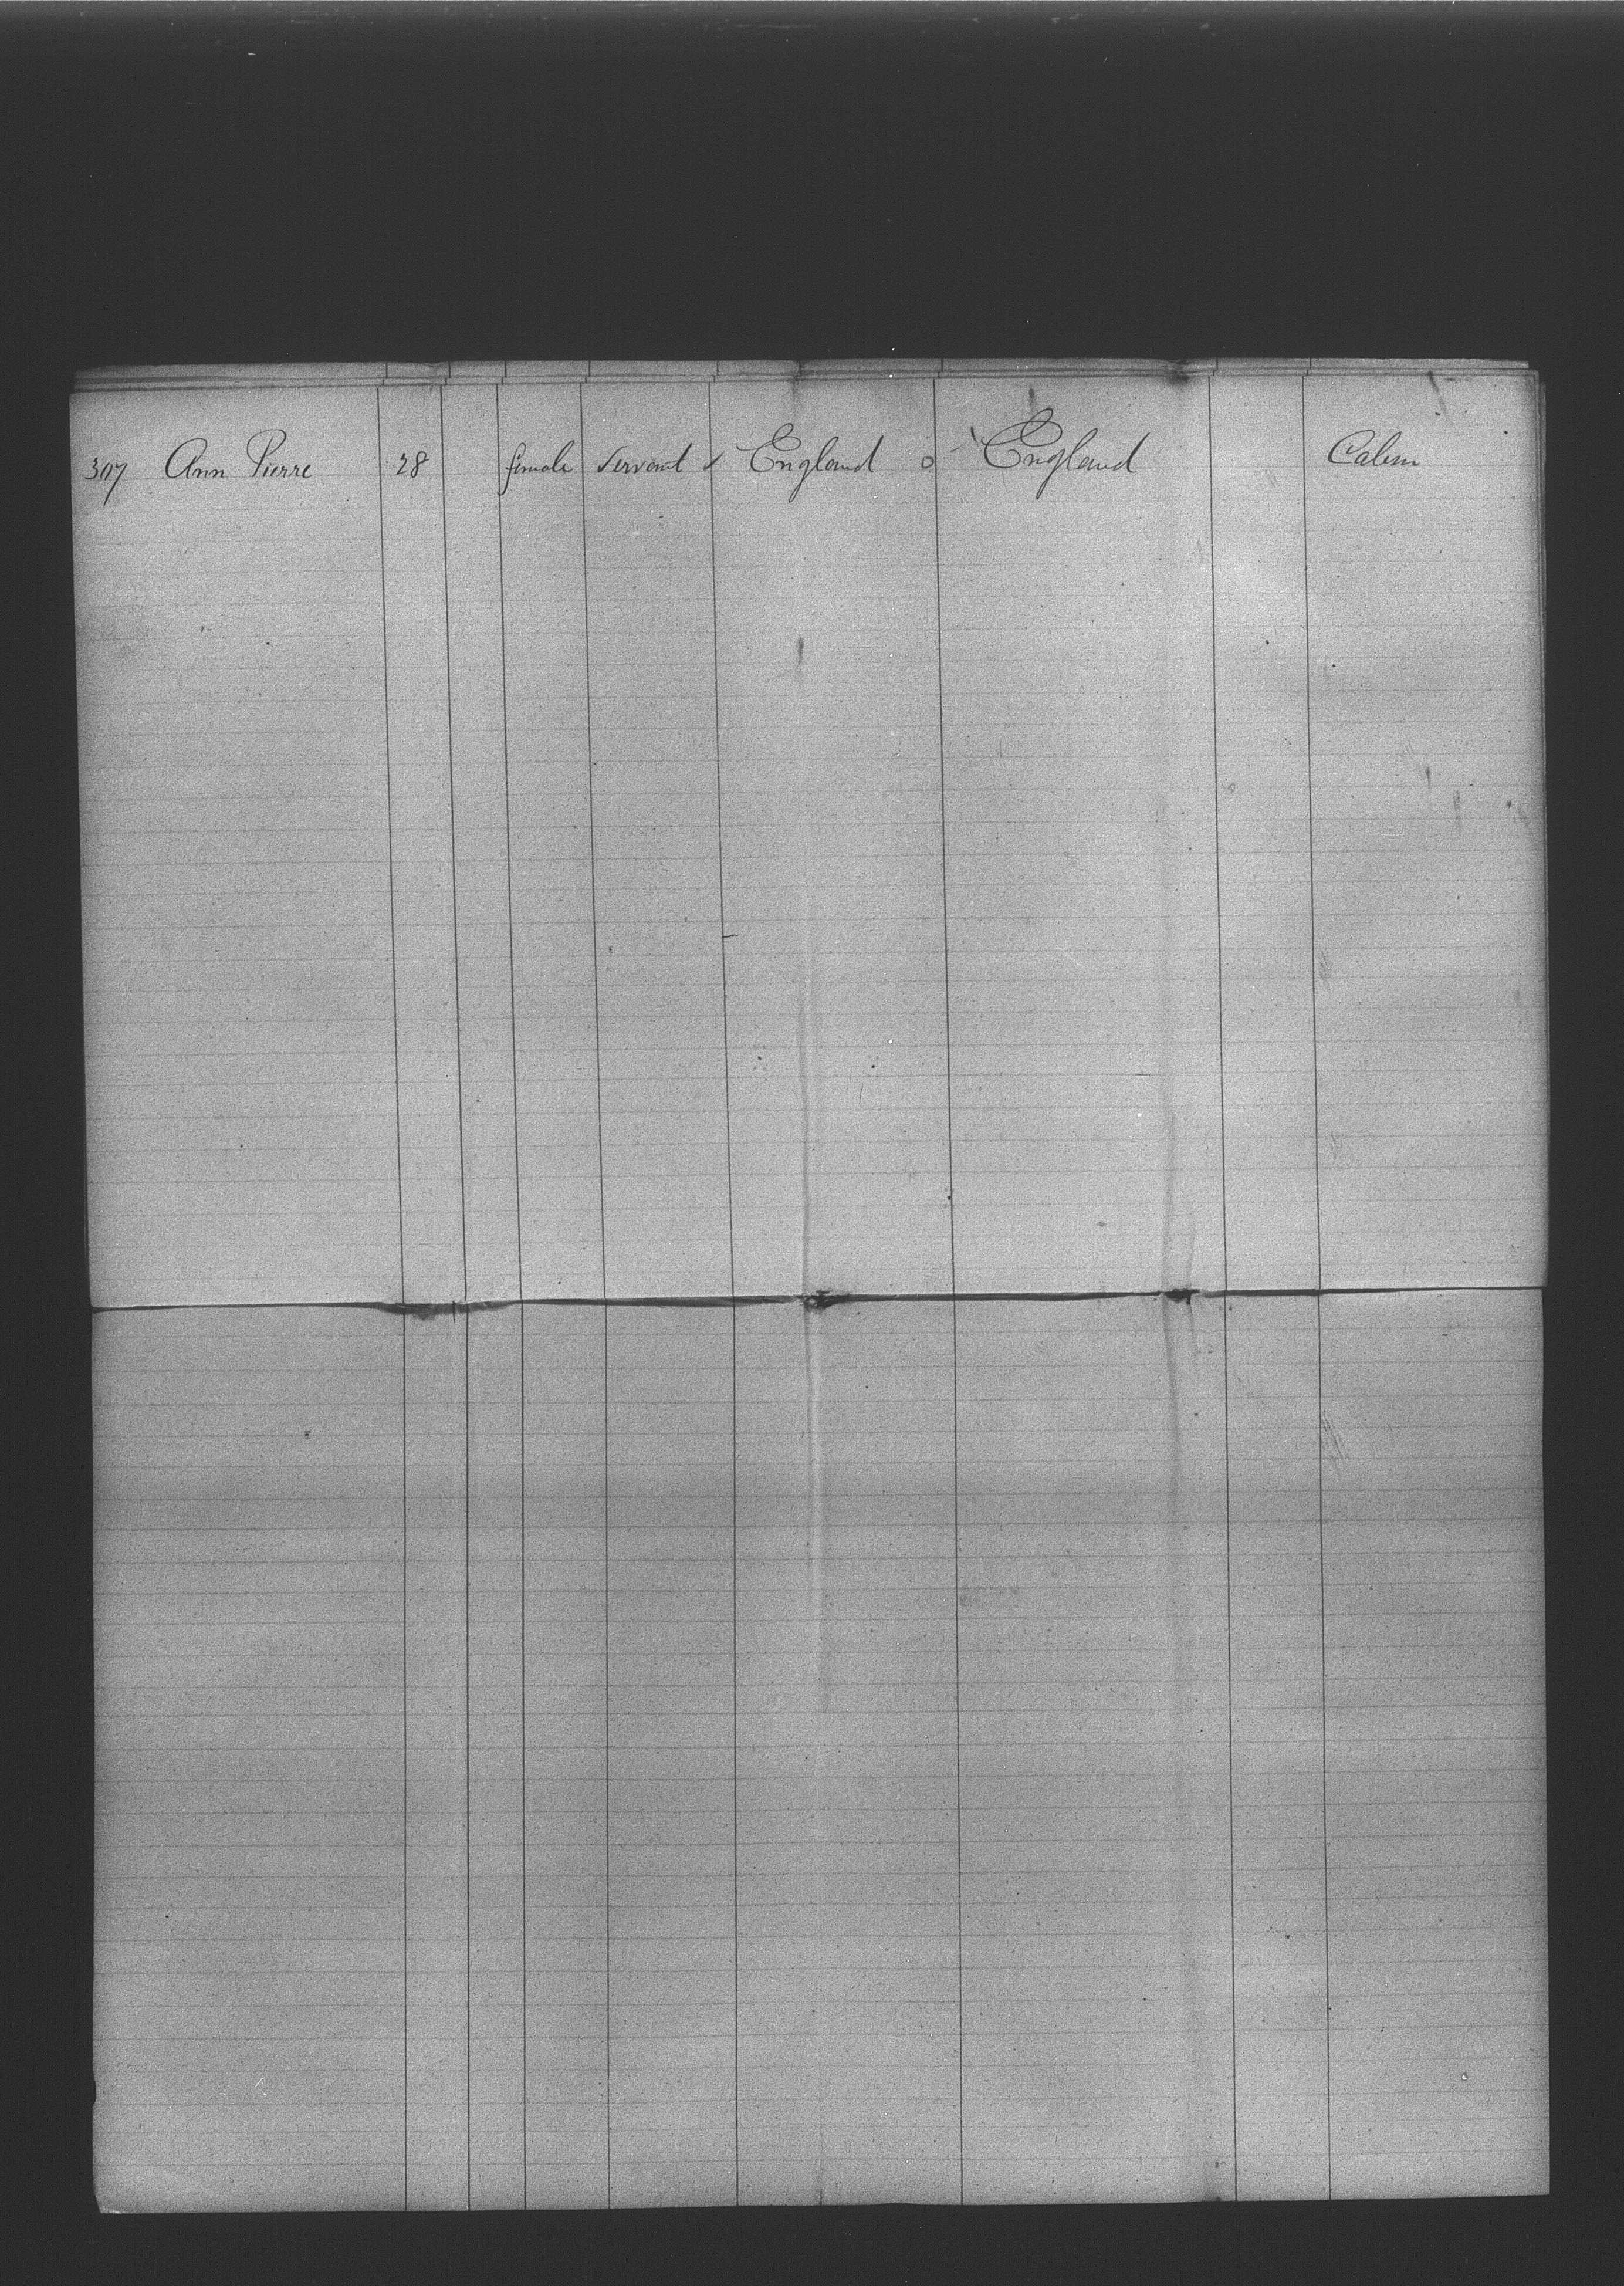 307 Ann Pierre 28 female servant England England Cabin